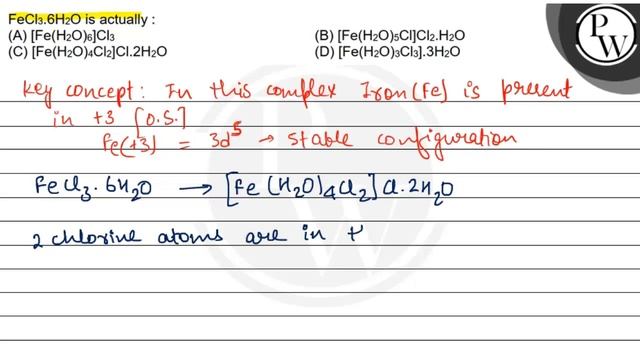 FeCl3.6H2O is actually :
(A) [Fe(H2O)6]Cl3
(B) [Fe(H2O)5Cl]Cl2.H2O
(C) [Fe(H2O)4Cl2]Cl.2H2O
(D) [Fe(H2O)3Cl3].3H2O
PW
Key concept: In this complex Iron(Fe) is present
in +3 [O.S.]
Fe(+3) = 3d5 → stable configuration
FeCl3.6H2O → [Fe(H2O)4Cl2]Cl.2H2O
2 chlorine atoms are in